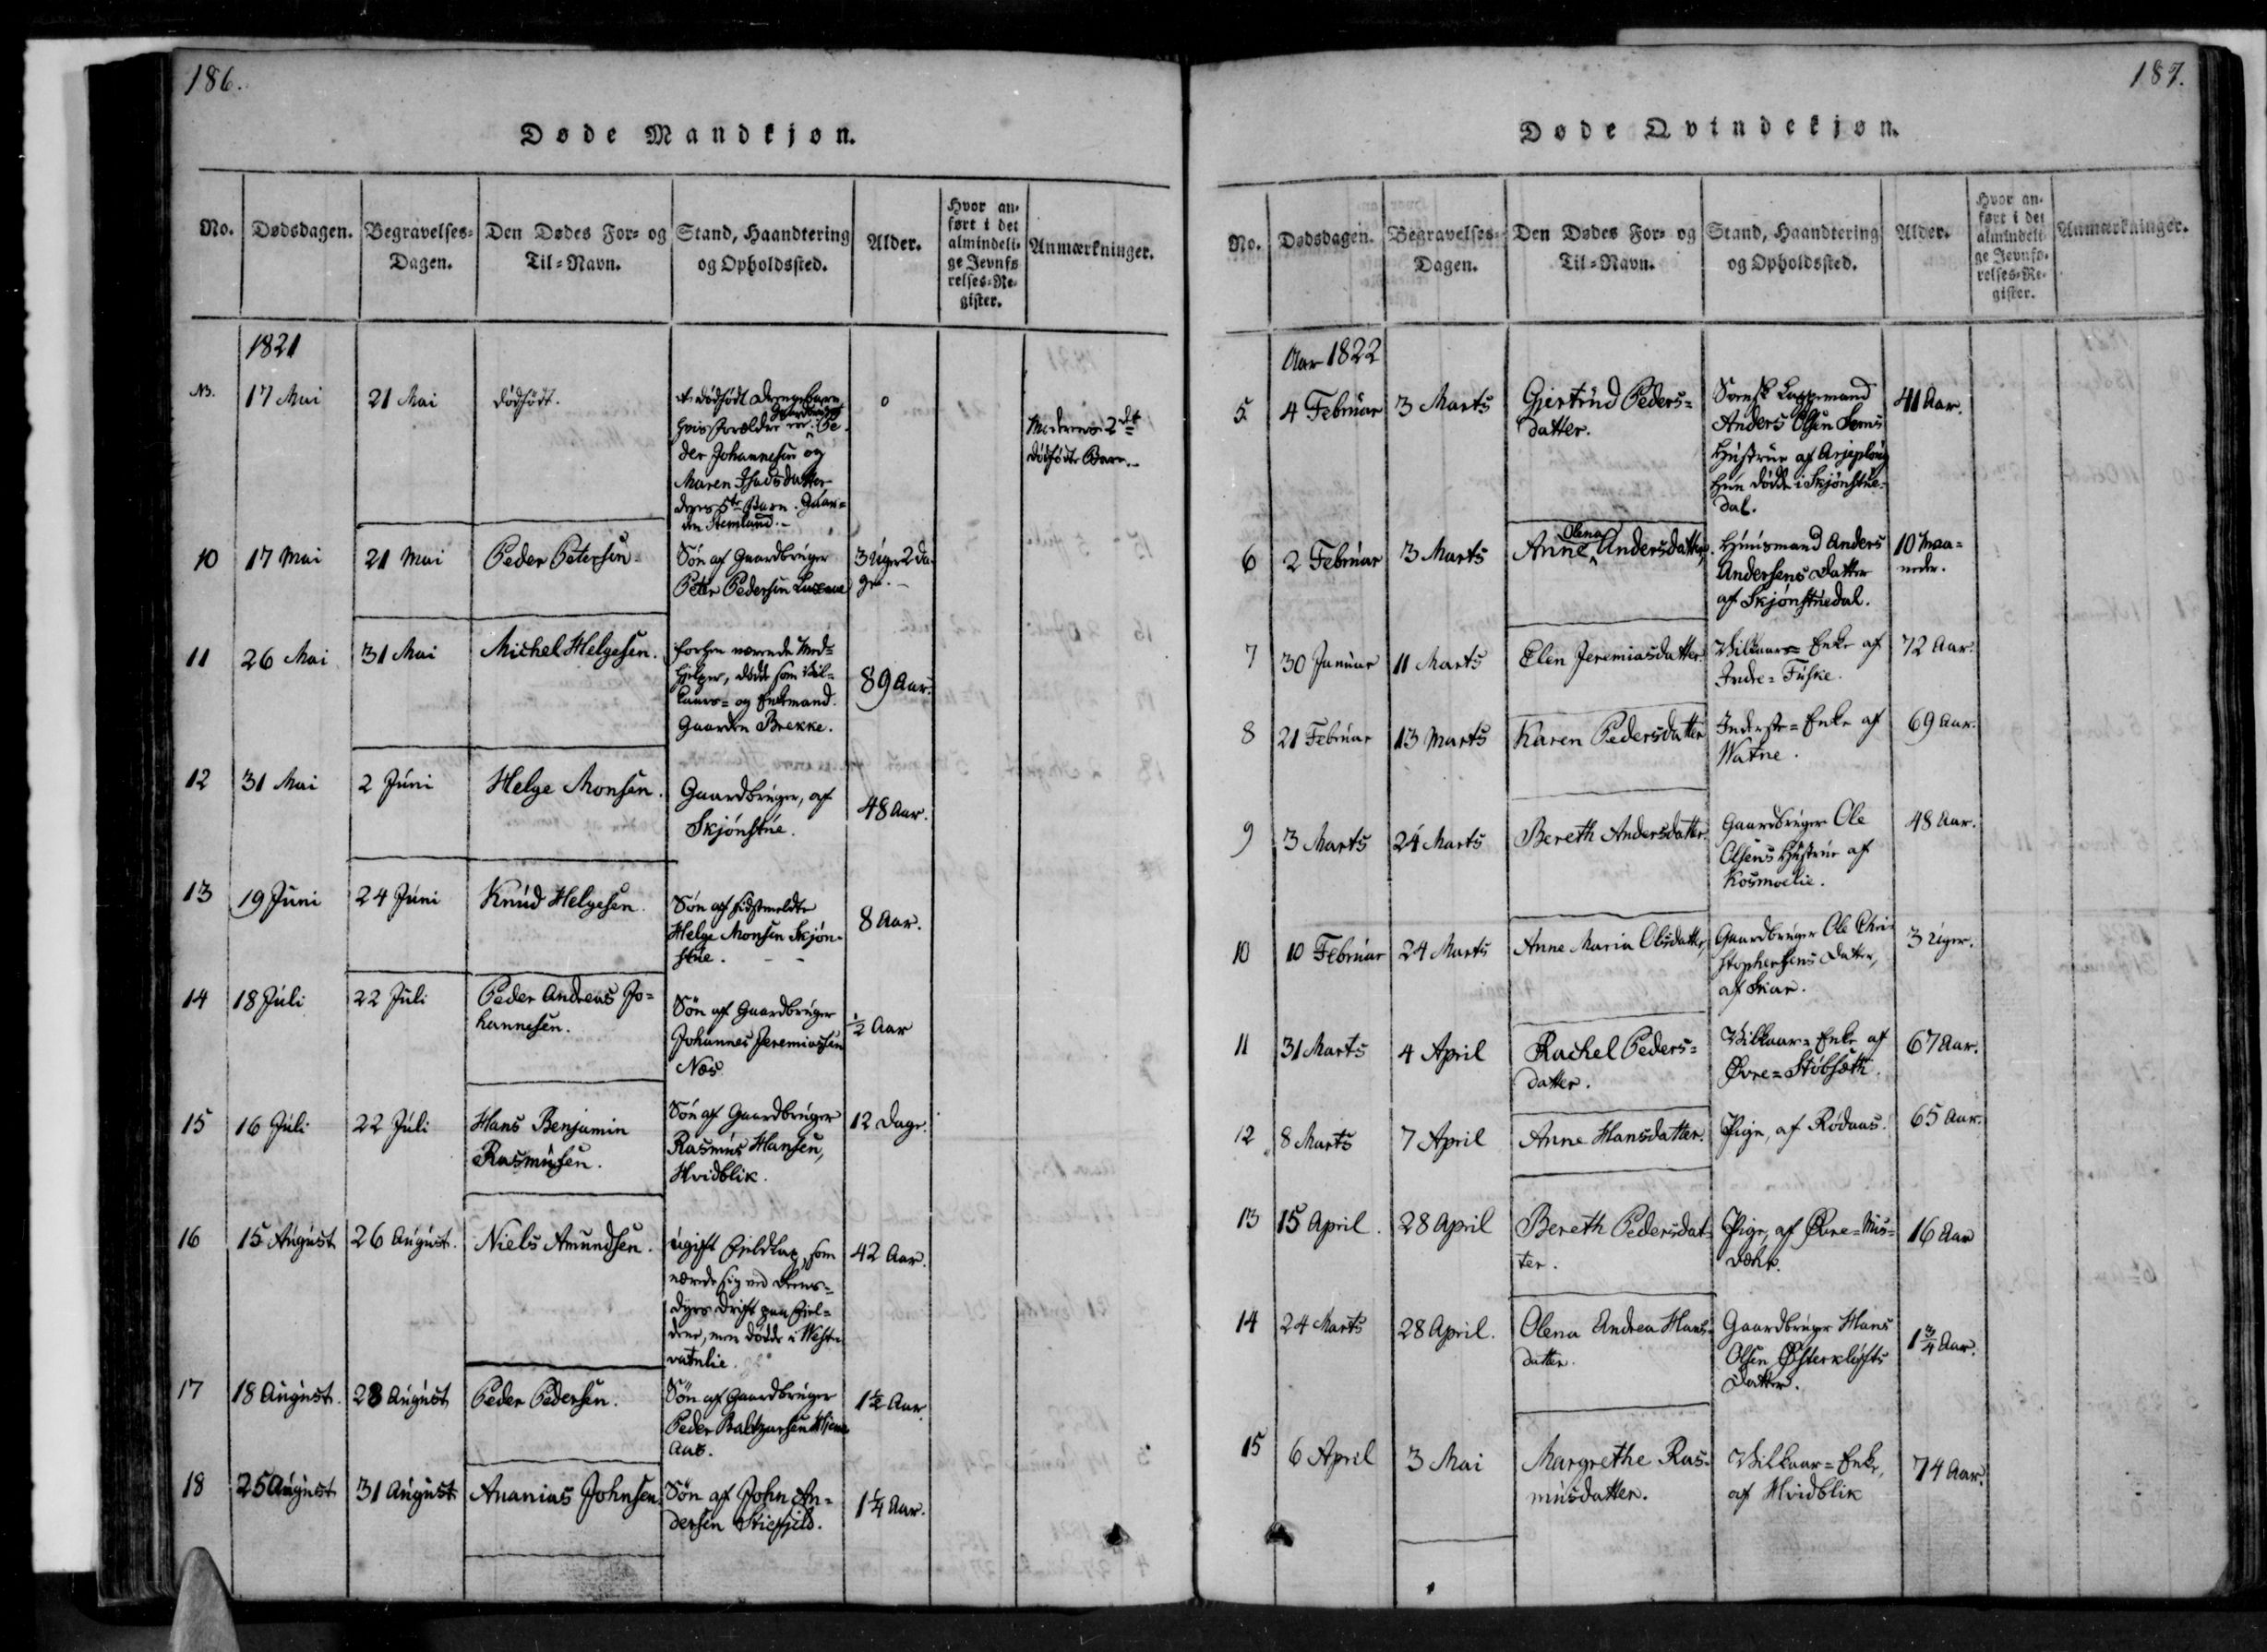 186.
Døde Mandkjøn.
No. Dødsdagen. Begravelses-Dagen. Den Dødes For- og Til-Navn. Stand, Haandtering og Opholdssted. Alder. Hvor anført i det almindelige Jevnførelses-Register. Anmærkninger.
1821
NB. 17 Mai 21 Mai dødfødt. et dødfødt Drengebarn
hvis Forældre er Gaardbruger Pe-
der Johannesen og
Maren Isacsdatter
deres 5te Barn. Gaar-
den Stemland. 0
Moderens 2det
dødfødte Barn.
10 17 Mai 21 Mai Peder Petersen Søn af Gaardbruger
Peter Pedersen 3 Uger 2 Da-
ge.
11 26 Mai 31 Mai Michel Helgesen. forhen værende Med-
hjelper, døde som Vil-
kaars- og Enkemand.
Gaarden Brekke. 89 Aar.
12 31 Mai 2 Juni Helge Monsen. Gaardbruger, af
Skjønstue. 48 Aar.
13 19 Juni 24 Juni Knud Helgesen. Søn af sidstmeldte
Helge Monsen Skjøn-
stue. 8 Aar.
14 18 Juli 22 Juli Peder Andreas Jo-
hannesen. Søn af Gaardbruger
Johannes Jeremiassen
Næs ½ Aar
15 16 Juli 22 Juli Hans Benjamin
Rasmusen. Søn af Gaardbruger
Rasmus Hansen,
Hvidblik. 12 Dage.
16 15 August 26 August. Niels Amundsen. ugift Fjeldlap, som
nærede sig ved Reens-
dyrs Drift paa Fjel-
dene, men døde i Westre
vatnlie. 42 Aar.
17 18 August. 28 August Peder Pedersen. Søn af Gaardbruger
Peder Baltzarsen
Aas. 1½ Aar
18 25 August 31 August Ananias Johnsen Søn af John An-
dersen Stiefjeld. 1¼ Aar.
187.
Døde Qvindekjøn.
No. Dødsdagen. Begravelses-Dagen. Den Dødes For- og Til-Navn. Stand, Haandtering og Opholdssted. Alder. Hvor anført i det almindelige Jevnførelses-Register. Anmærkninger.
Aar 1822
5 4 Februar 3 Marts Giertrud Peders-
datter. Svensk Lappemand
Anders Olsen
Hustrue af Arjeploug
hun døde i Skjønstue-
dal. 41 Aar.
6 2 Februar 3 Marts Anne Olena Andersdatter, Huusmand Anders
Andersens Datter
af Skjønstuedal. 10 Maa-
neder.
7 30 Januar 11 Marts Elen Jeremiasdatter. Vilkaars-Enke af
Indre-Fuske. 72 Aar.
8 21 Februar 13 Marts Karen Pedersdatter Inderste-Enke af
Watne. 69 Aar.
9 3 Marts 24 Marts Bereth Andersdatter. Gaardbruger Ole
Olsens Hustrue af
Kosmoelie. 48 Aar.
10 10 Februar 24 Marts Anne Maria Olsdatter, Gaardbruger Ole Chri-
stophersens Datter,
af Skar. 3 Uger.
11 31 Marts 4 April Rachel Peders-
datter. Vilkaar-Enke af
Øvre-Støbsæth. 67 Aar.
12 8 Marts 7 April Anne Hansdatter. Pige, af Rødaas. 65 Aar.
13 15 April. 28 April Bereth Pedersdat-
ter. Pige, af Øvre-Mis-
vær. 16 Aar
14 24 Marts 28 April. Olena Andrea Hans-
datter. Gaardbruger Hans
Olsen Østerkløfts
Datter. 1¾ Aar.
15 6 April 3 Mai Margrethe Ras-
musdatter. Vilkaar-Enke,
af Hvidblik 74 Aar.